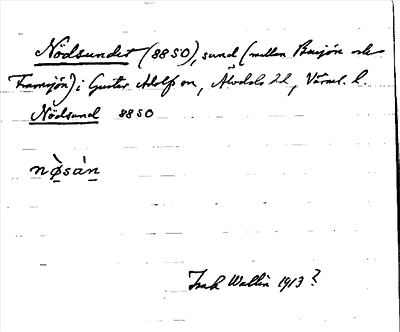 Nödsundet (8850), sund (mellan Busjön och
Framsjön) i Gustav Adolfs sn, Älvdals hd, Värml. l.
Nödsund 8850
nø̀sán
Isak Wallin 1913?